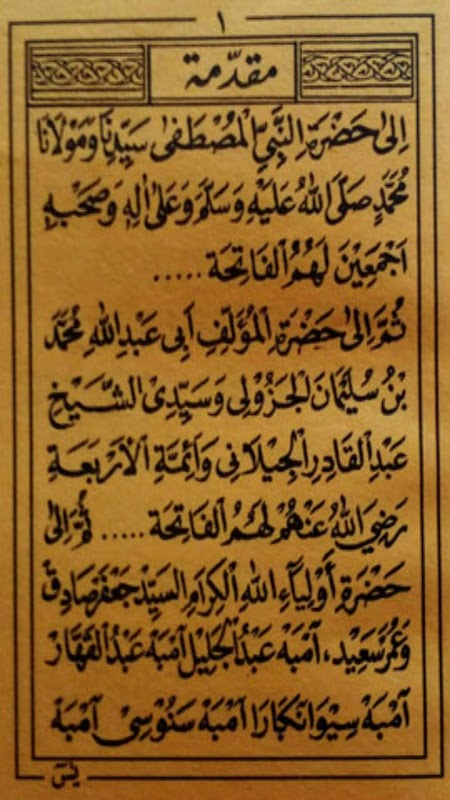 ١
مقدّمة
اِلىٰ حَضْرَةِ النَّبِيِّ الْمُصْطَفٰى سَيِّدِنَا وَمَوْلَانَا
مُحَمَّدٍ صَلَّى اللهُ عَلَيْهِ وَسَلَّمَ وَعَلٰى اٰلِهٖ وَصَحْبِهٖ
اَجْمَعِيْنَ لَهُمُ الْفَاتِحَة .....
ثُمَّ اِلىٰ حَضْرَةِ الْمُؤَلِّفِ اَبِى عَبْدِ اللهِ مُحَمَّدَ
بْنُ سُلَيْمَانَ الْجَزُوْلِى وَسَيِّدِى الشَّيْخِ
عَبْدِ الْقَادِرِ الْجِيْلَانِى وَاَئِمَّةِ الْاَرْبَعَةِ
رَضِيَ اللهُ عَنْهُمْ لَهُمُ الْفَاتِحَة ..... ثُمَّ اِلىٰ
حَضْرَةِ أَوْلِيَآءِ اللهِ الْكِرَامِ السَّيِّدْ جَعْفَرْ صَادِقْ
وَعُمَرْ سَعِيْد، اَمْبَهْ عَبْدُ الْجَلِيْل اَمْبَهْ عَبْدُ الْقَهَّارْ
اَمْبَهْ سِيْوَانَكَارَا اَمْبَهْ سَنُوْسِىْ اَمْبَهْ
يٰسٓ